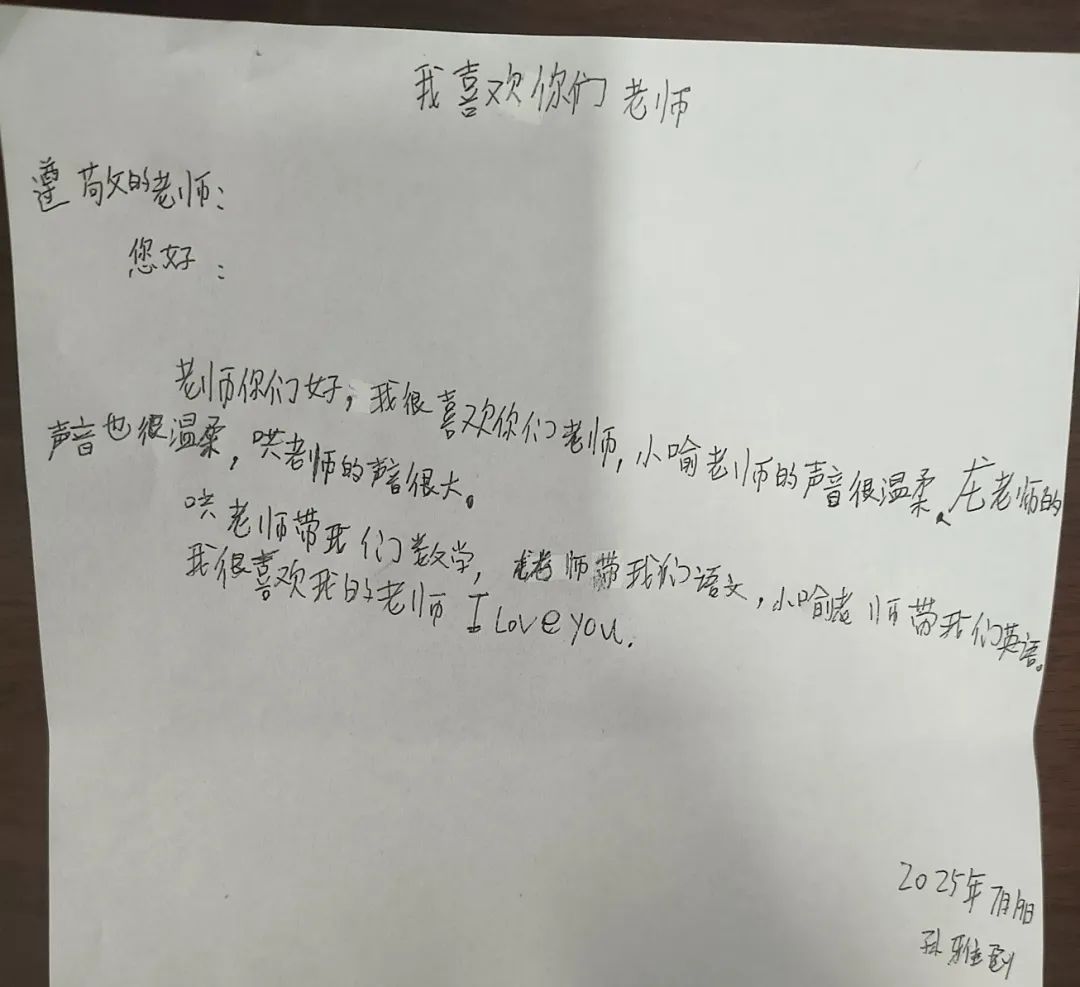 我喜欢你们老师
遵敬的老师：
您好：
老师你们好，我很喜欢你们老师，小喻老师的声音很温柔、龙老师的
声音也很温柔，哄老师的声音很大。
哄老师带我们数学，老师带我们语文，小喻老师带我们英语。
我很喜欢我的老师 I Love you.
2025年7月
孙雅